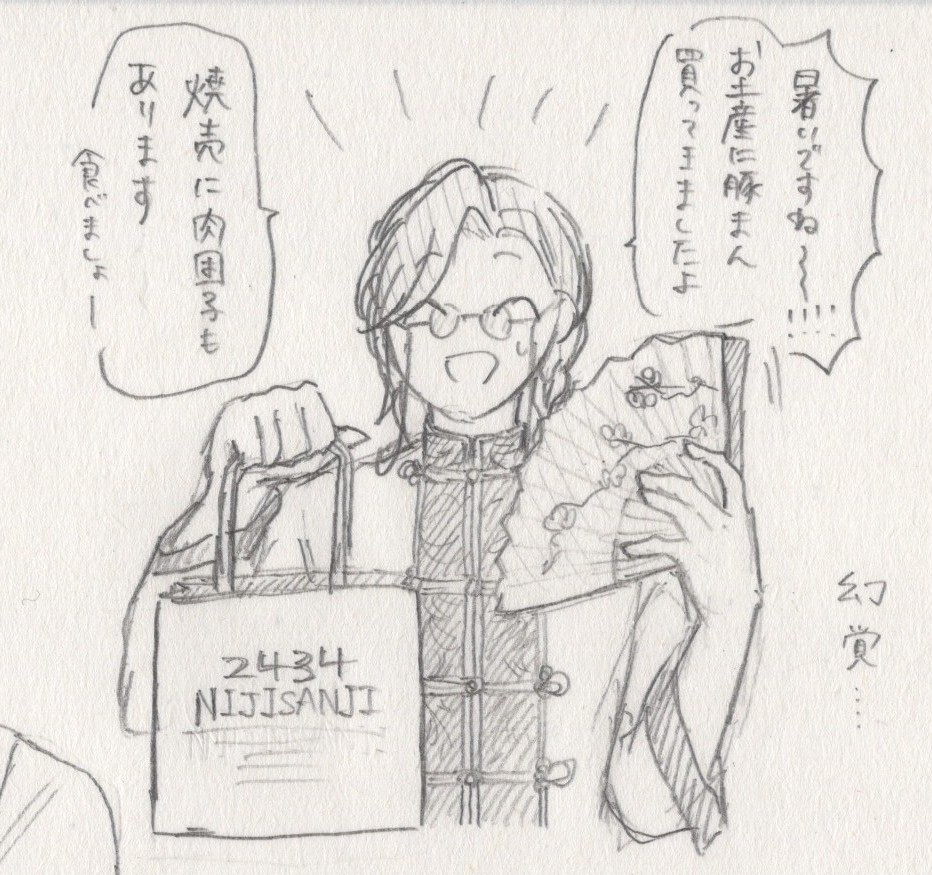 暑いですね〜〜!!!!
お土産に豚まん
買ってきましたよ
焼売に肉団子も
あります
食べましょー
2434
NIJISANJI
幻覚……